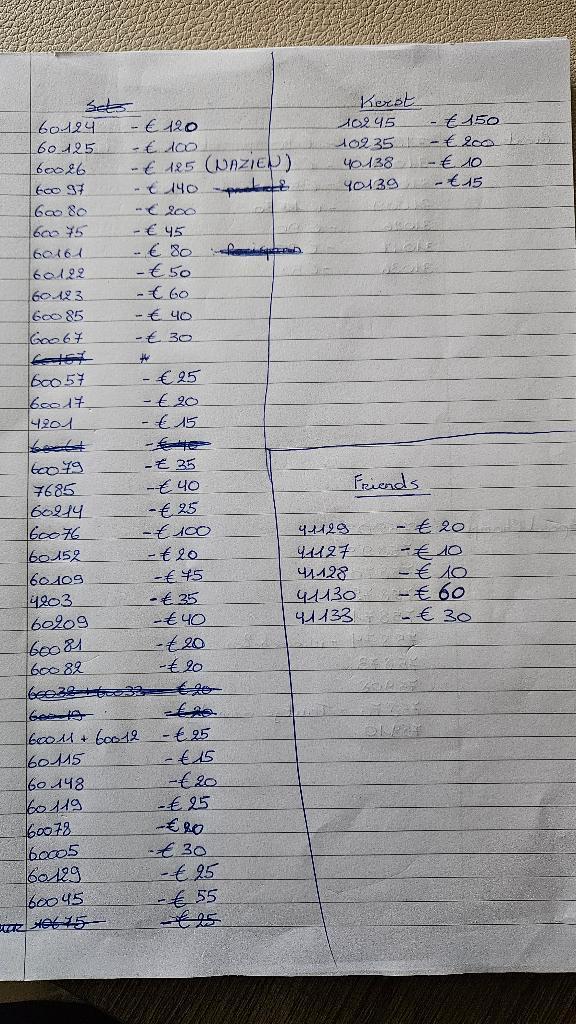 Sets
60124 - € 120
60125 - € 100
60026 - € 125 (NAZIEN)
60097 - € 140
60080 - € 200
60075 - € 45
60161 - € 80
60122 - € 50
60123 - € 60
60085 - € 40
60067 - € 30
60157
60057 - € 25
60017 - € 20
4201 - € 15
60061 - € 40
60079 - € 35
7685 - € 40
60214 - € 25
60076 - € 100
60152 - € 20
60109 - € 75
4203 - € 35
60209 - € 40
60081 - € 20
60082 - € 20
60032 + 60033 - € 20
60019 - € 20
60011 + 60012 - € 25
60115 - € 15
60148 - € 20
60119 - € 25
60078 - € 20
60005 - € 30
60129 - € 25
60045 - € 55
10675 - € 25
Kerst
10245 - € 150
10235 - € 200
40138 - € 10
40139 - € 15
Friends
41129 - € 20
41127 - € 10
41128 - € 10
41130 - € 60
41133 - € 30